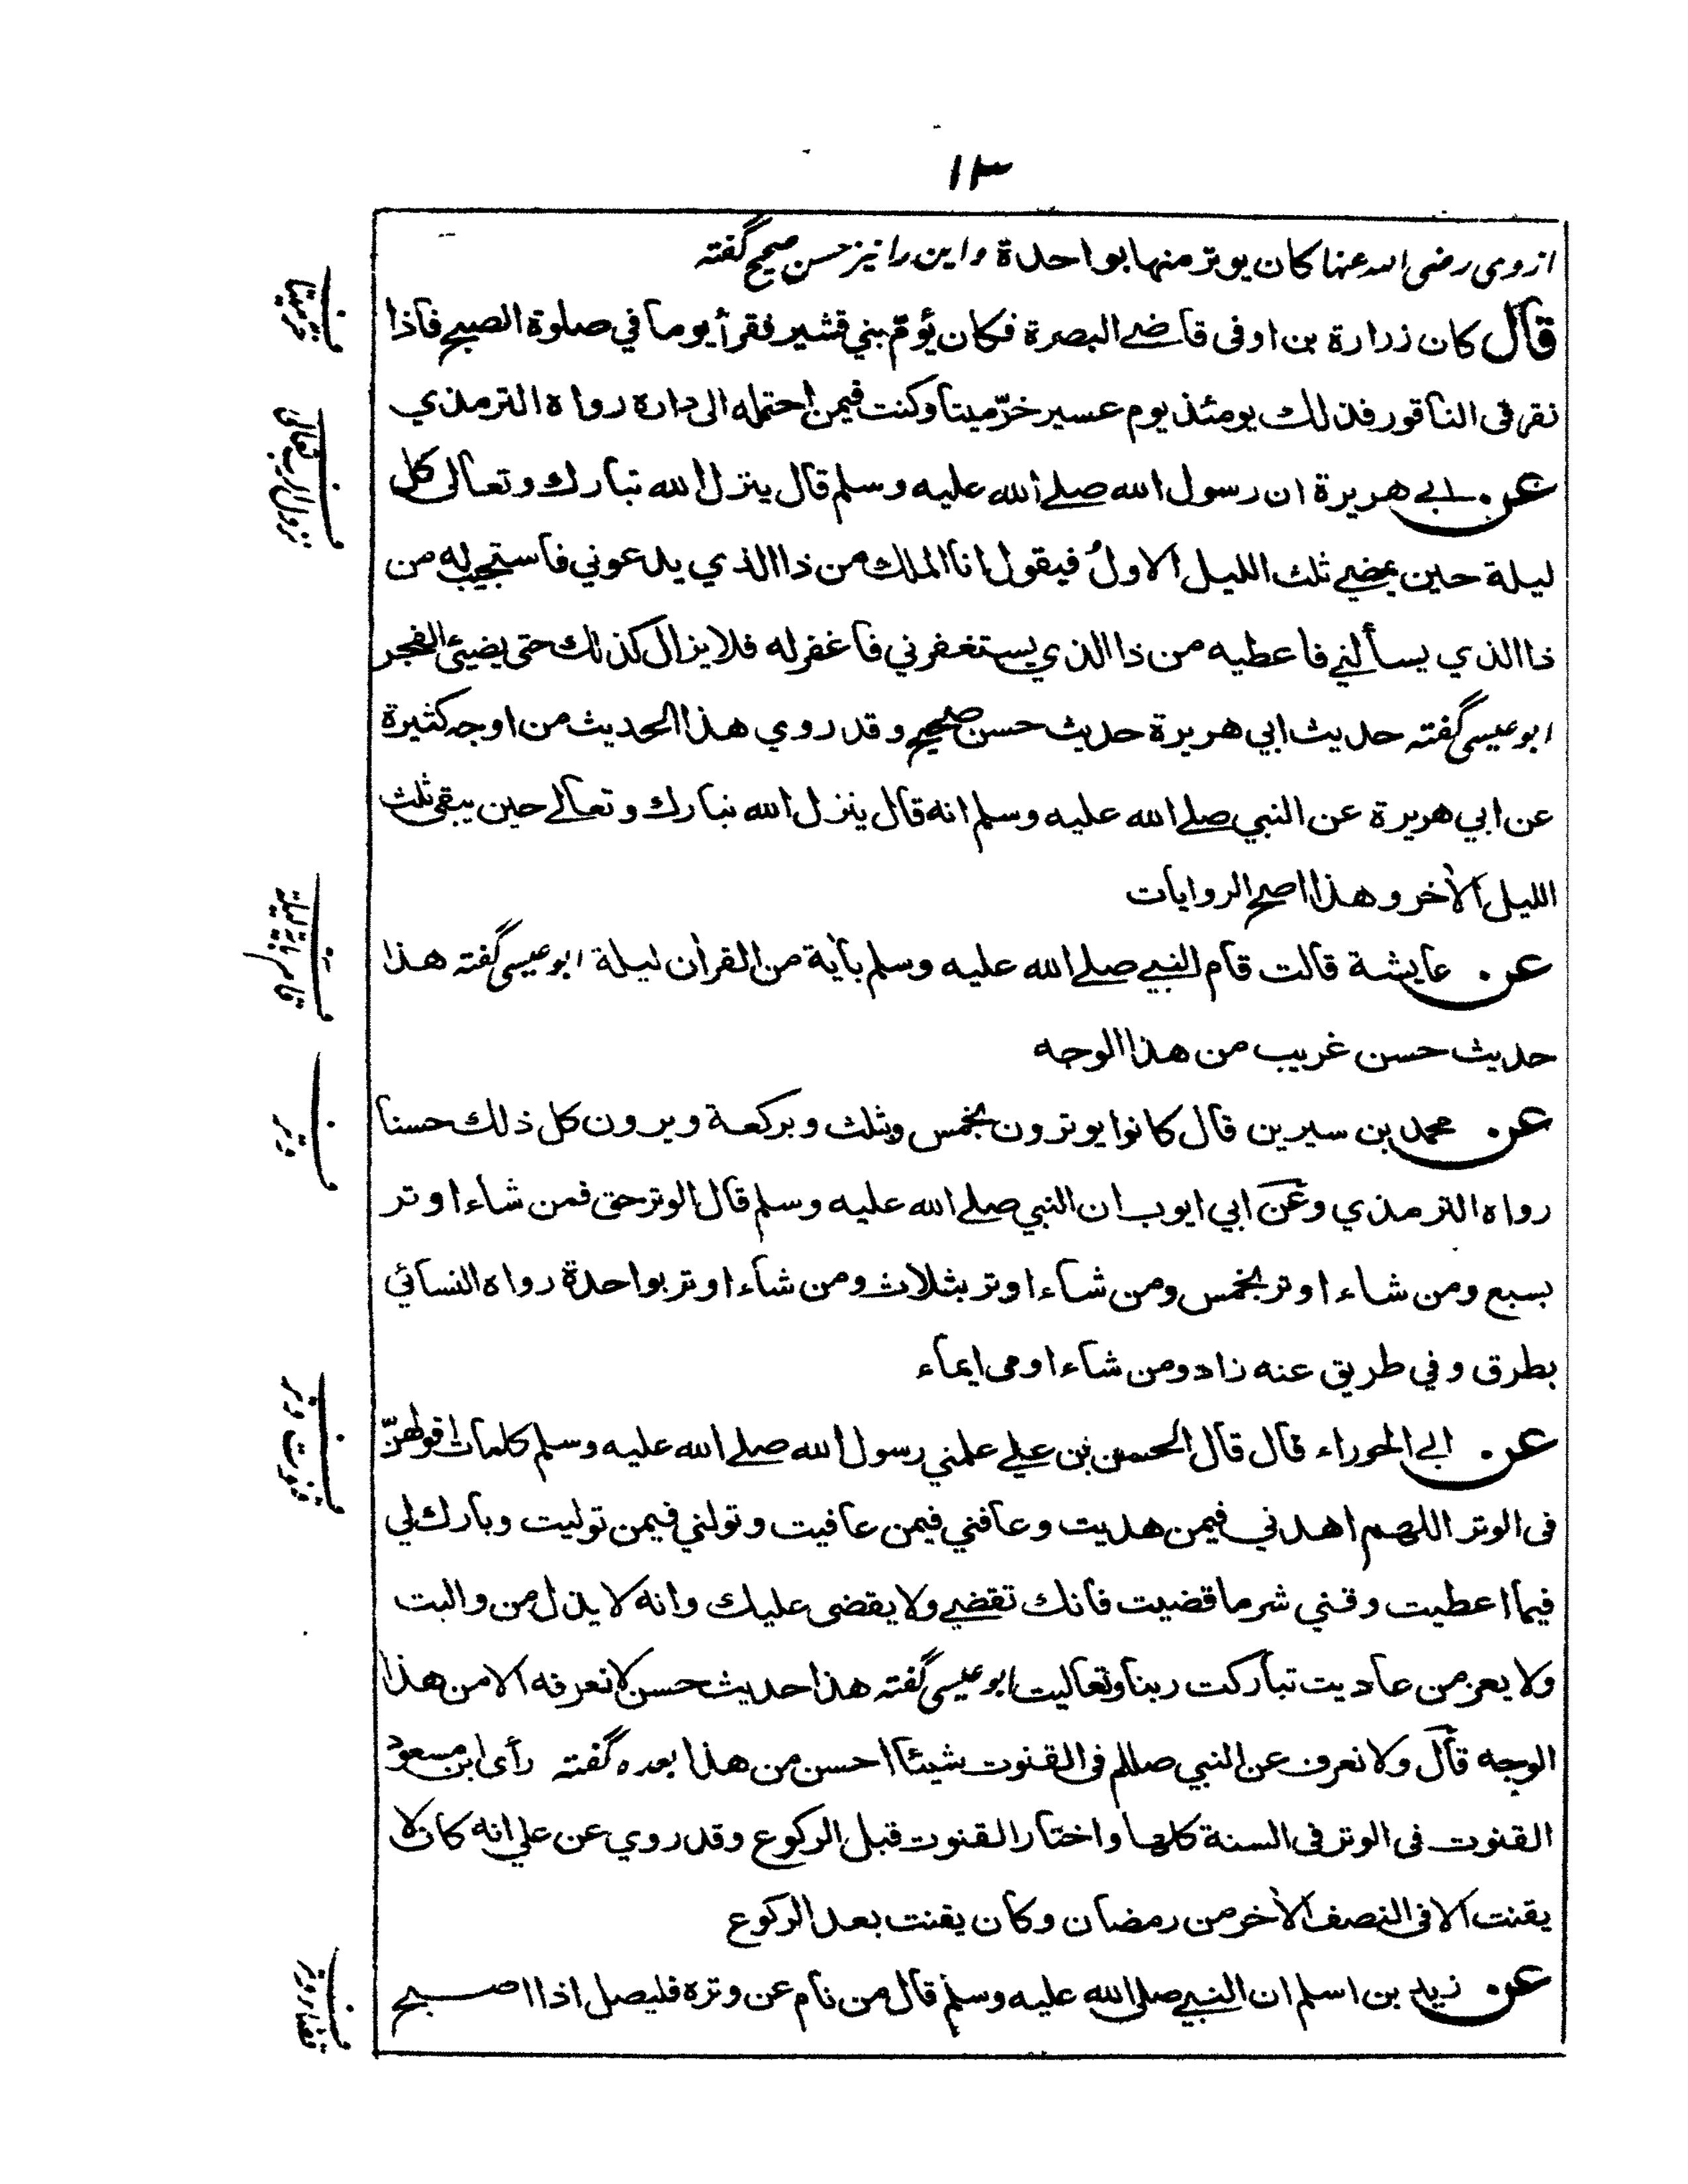 ١٣
ازوی رضی الله عنها كان يوتر منها بواحدة واین را نیز حسن صحیح گفته
قال كان زرارة بن اوفى قاضے البصرة فكان يؤمّ بني قشير فقرأ يوما في صلوة الصبح فاذا
نقر فى الناقور فذلك يومئذ يوم عسير خرّ ميتا وكنت فيمن احتمله الى داره رواه الترمذي
عن ابے هريرة ان رسول الله صلے الله عليه وسلم قال ينزل الله تبارك وتعالى كل
ليلة حين يمضے ثلث الليل الاول فيقول انا الملك من ذا الذي يدعوني فاستجيب له من
ذا الذي يسألنے فاعطيه من ذا الذي يستغفرني فاغفر له فلا يزال كذلك حتى يضيئ الفجر
ابو عیسی گفته حديث ابي هريرة حديث حسن صحيح وقد روي هذا الحديث من اوجه كثيرة
عن ابي هريرة عن النبي صلے الله عليه وسلم انه قال ينزل الله تبارك وتعالے حين يبقى ثلث
الليل الأخر وهذا اصح الروايات
عن عايشة قالت قام النبے صلے الله عليه وسلم بأية من القرأن ليلة ابو عیسی گفته هذا
حديث حسن غريب من هذا الوجه
عن محمد بن سيرين قال كانوا يوترون بخمس وبثلث وبركعة ويرون كل ذلك حسنا
رواه الترمذي وعن ابي ايوب ان النبي صلے الله عليه وسلم قال الوتر حق فمن شاء اوتر
بسبع ومن شاء اوتر بخمس ومن شاء اوتر بثلاث ومن شاء اوتر بواحدة رواه النسائي
بطرق وفي طريق عنه زاد ومن شاء اومى ايماء
عن ابے الحوراء قال قال الحسن بن علے علمني رسول الله صلے الله عليه وسلم كلمات اقولهنّ
فى الوتر اللهم اهدني فيمن هديت وعافني فيمن عافيت وتولني فيمن توليت وبارك لي
فيما اعطيت وقني شر ما قضيت فانك تقضے ولا يقضى عليك وانه لا يذل من واليت
ولا يعز من عاديت تباركت ربنا وتعاليت ابو عیسی گفته هذا حديث حسن لا نعرفه الا من هذا
الوجه قال ولا نعرف عن النبي صللم فى القنوت شيئا احسن من هذا بعده گفته رأى ابن مسعود
القنوت فى الوتر فى السنة كلها واختار القنوت قبل الركوع وقد روي عن علي انه كان لا
يقنت الا فى النصف الأخر من رمضان وكان يقنت بعد الركوع
عن زيد بن اسلم ان النبے صلى الله عليه وسلم قال من نام عن وتره فليصل اذا اصبح
ف
خر ميتا
ف
نزول الرب تعالى
ف
قام بآية ليلة
ف
وتر
ف
قنوت وتر
ف
قضاء وتر